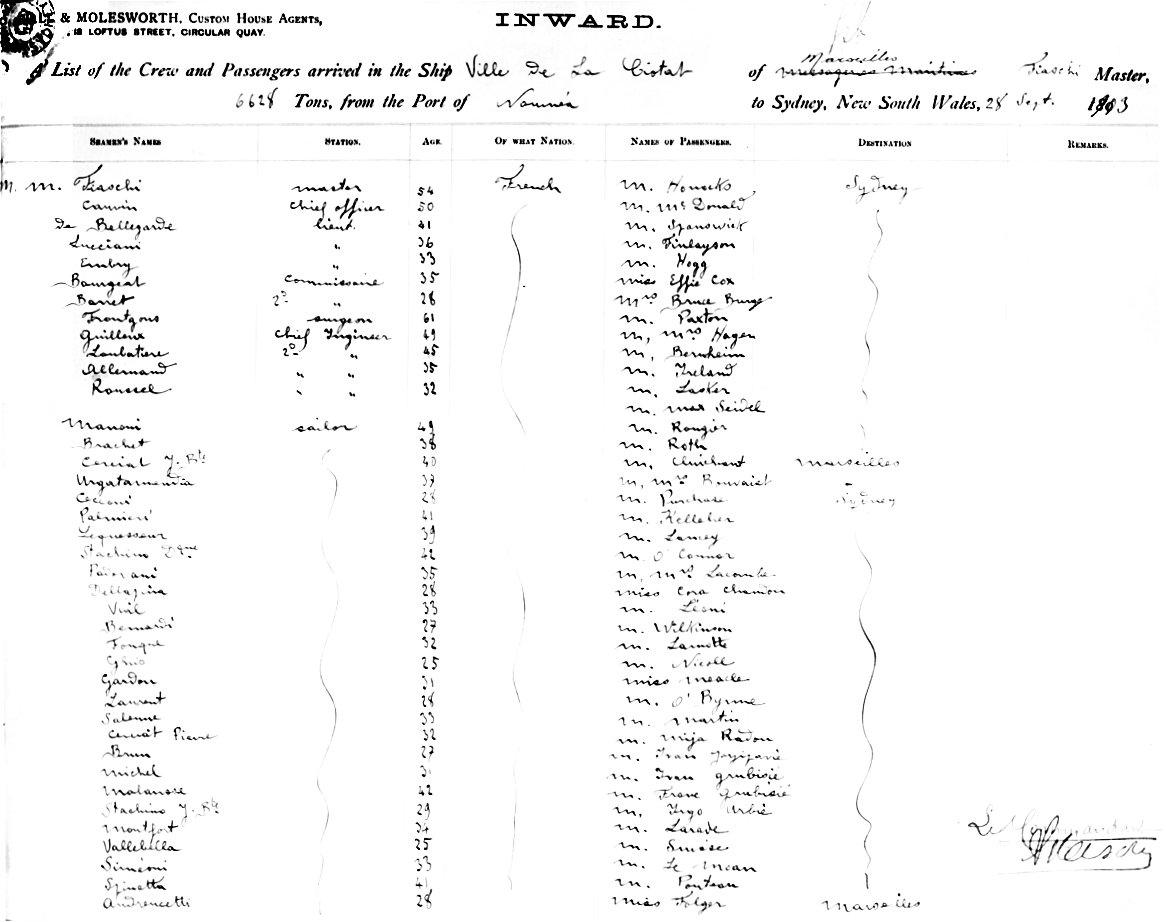 & MOLESWORTH, CUSTOM HOUSE AGENTS,
LOFTUS STREET, CIRCULAR QUAY.
INWARD.
A List of the Crew and Passengers arrived in the Ship Ville De La Ciotat of Marseilles Messageries Maritimes Fiaschi Master,
6628 Tons, from the Port of Nouméa to Sydney, New South Wales, 28 Sept. 1903
SEAMEN'S NAMES STATION. AGE. OF WHAT NATION. NAMES OF PASSENGERS. DESTINATION REMARKS.
M. M. Fiaschi master 54 French M. Sydney
Canvin chief officer 50 M. McDonald
De Bellegarde lieut. 41 M. Spanswick
Lucciani " 36 M. Finlayson
Embry " 33 M. Hogg
Bourgeat Commissaire 35 Miss Effie Cox
Barret 2D " 28 Mrs Bruce Burge
Frontgous surgeon 61 M. Paxton
Guilloux Chief Ingineer 49 M, Mrs Hagen
Loubatiere 2D " 45 M, Bernheim
Allemand " " 35 M. Ireland
Roussel " " 32 M. Lasker
M. Max Seidel
Manoni sailor 49 M. Rougier
Brachet 38 M. Roth
J. Bte 40 M, Marseilles
37 M, Mrs
Cecconi 28 M. Purchase Sydney
Palmieri 41 M. Kelleher
Lequesseur 39 M. Lamey
Stachino Dque 42 M. O'Connor
Padovani 35 M, Mrs Lacombe
Dellapina 28 Miss Cora Chandon
33 M. Léoni
Bernardi 27 M. Wilkinson
Fouque 32 M. Lamotte
Ghio 25 M. Nicoll
Gardon 31 Miss Meade
Laurent 28 M. O'Byrne
33 M. Martin
Pierre 32 M. Mija Radou
Brun 27 M. Ivan
Michel 31 M. Ivan Grubisié
Malanose 42 M. Frane Grubisié
Stachino J. Bte 29 M, Urbié
Montfort 34 M. Larade
Vallebella 25 M.
Siméoni 33 M. Le Mean
Spinetta 41 M. Ponteau
Andreucetti 28 Miss Folger Marseilles
Le Commandant